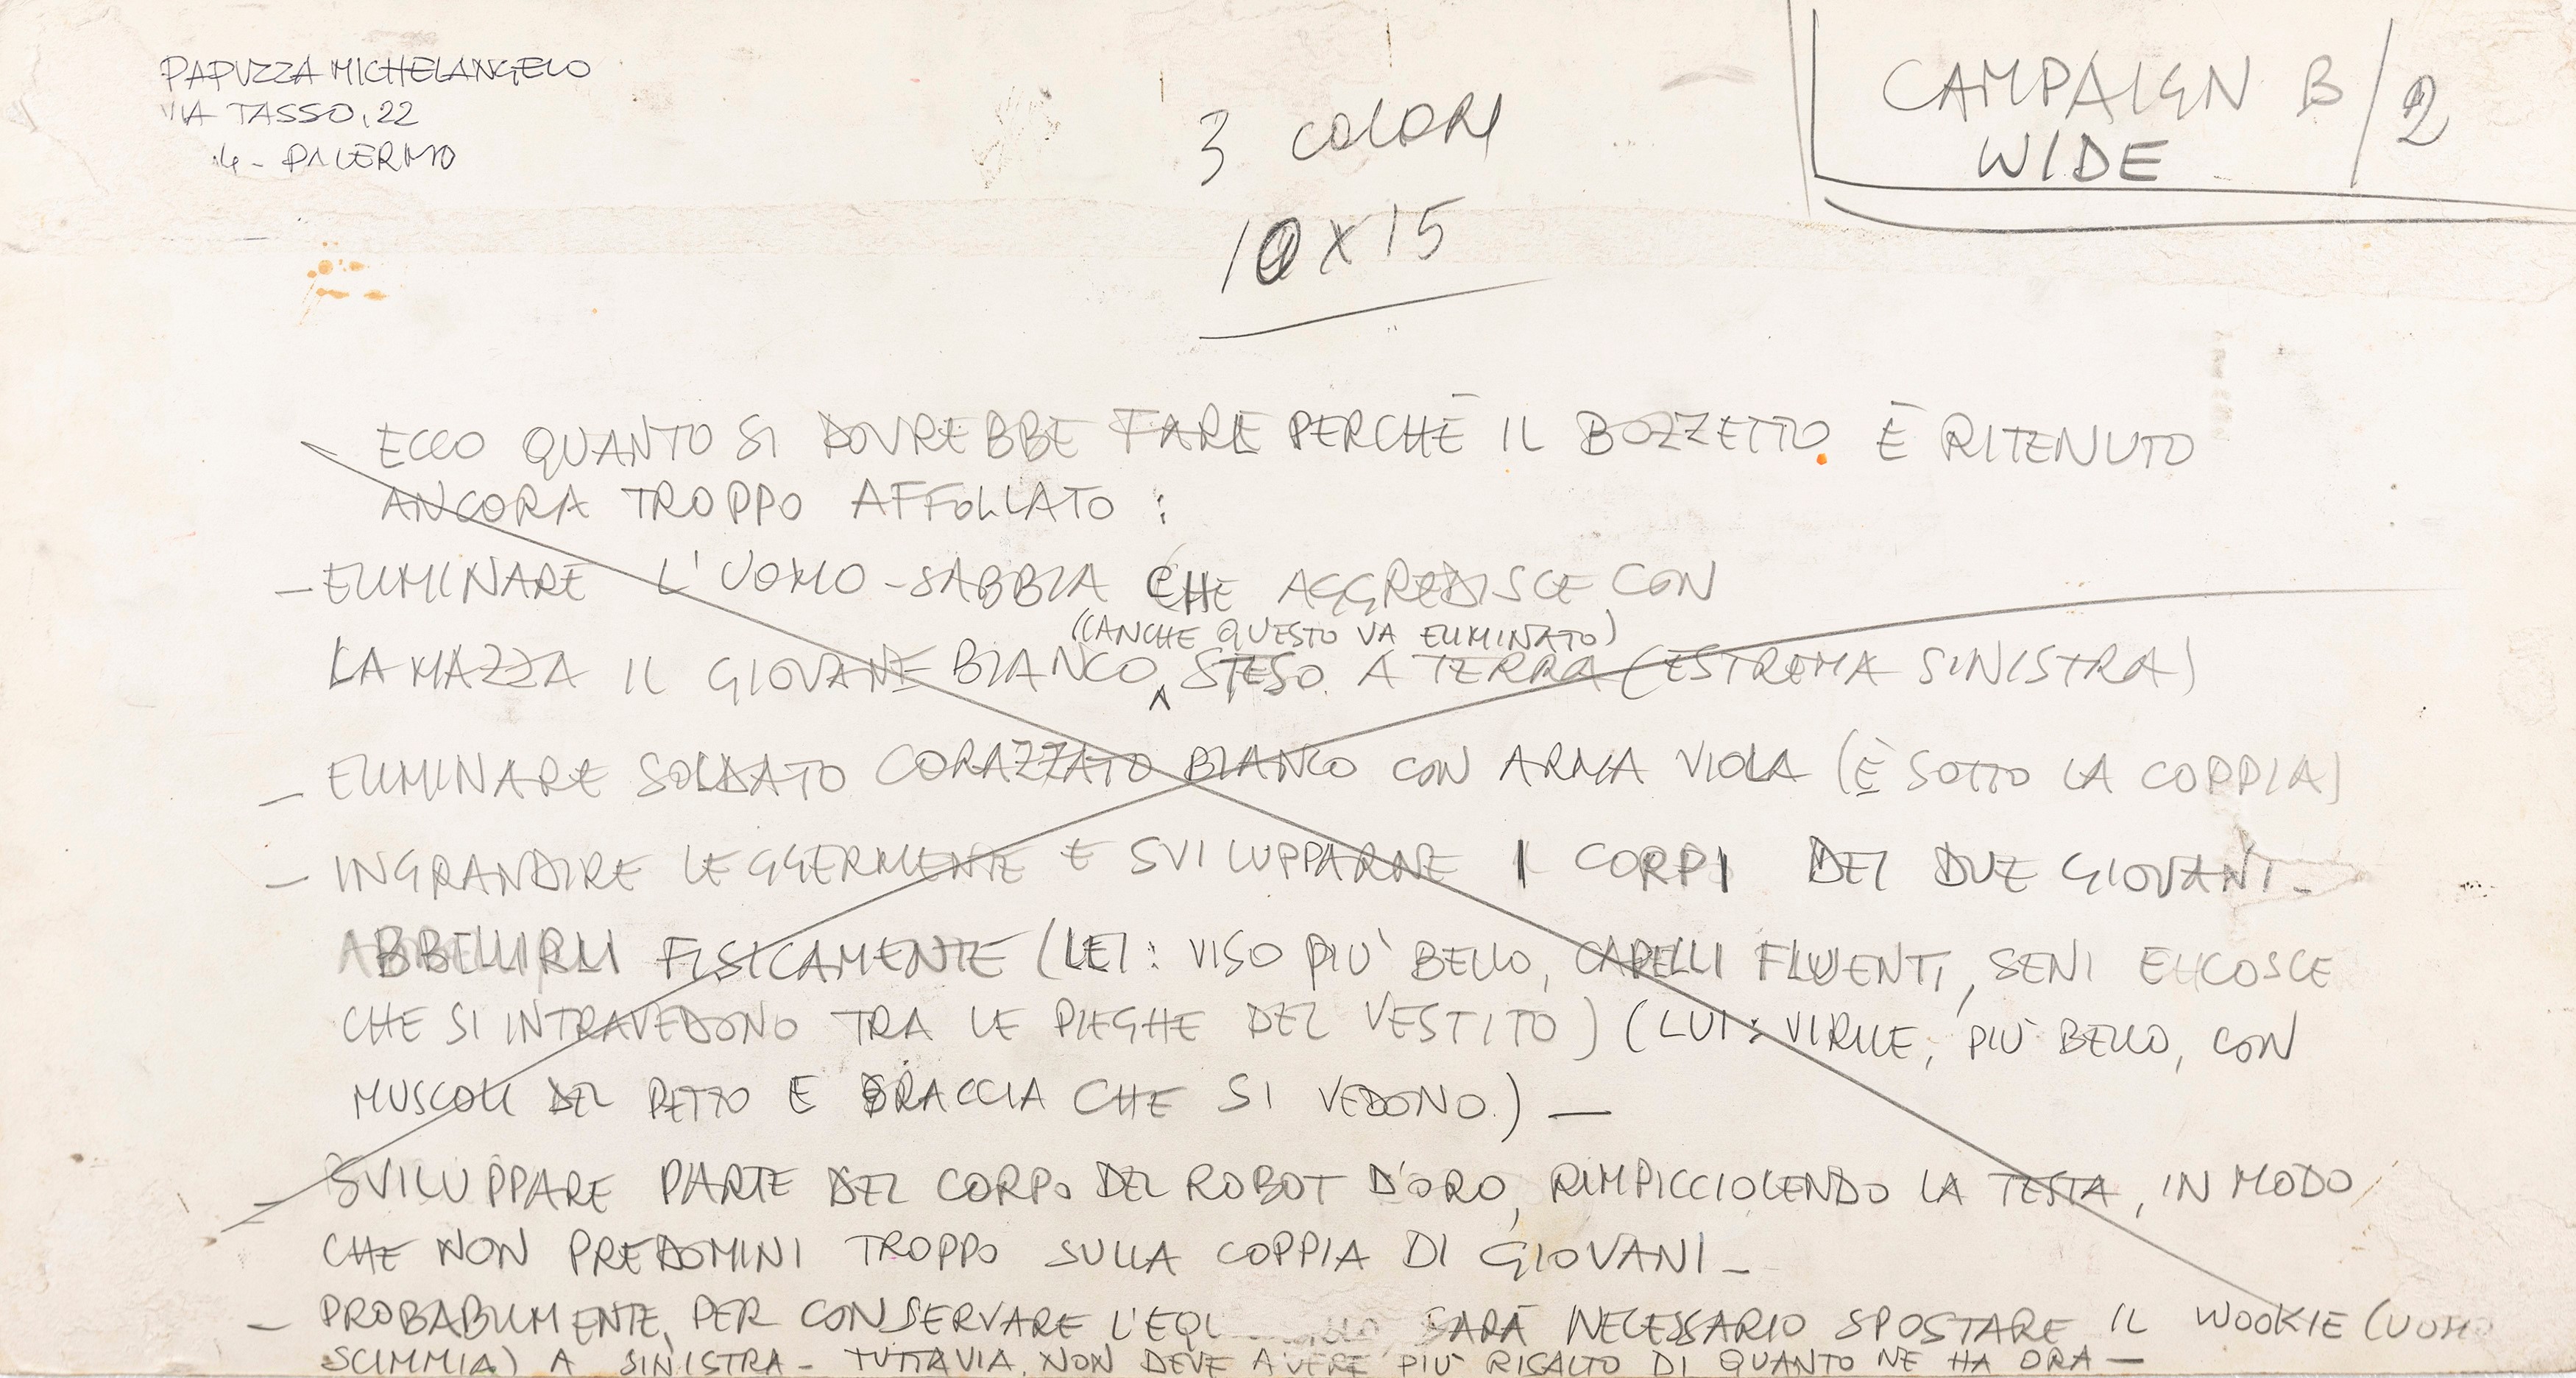 PAPUZZA MICHELANGELO
VIA TASSO, 22
PALERMO
3 COLORI
10X15
CAMPAIGN B/2
WIDE
ECCO QUANTO SI DOVREBBE FARE PERCHÈ IL BOZZETTO È RITENUTO
ANCORA TROPPO AFFOLLATO :
– ELIMINARE L'UOMO-SABBIA CHE AGGREDISCE CON
(ANCHE QUESTO VA ELIMINATO)
LA MAZZA IL GIOVANE BIANCO STESO A TERRA (ESTREMA SINISTRA)
– ELIMINARE SOLDATO CORAZZATO BIANCO CON ARMA VIOLA (È SOTTO LA COPPIA)
– INGRANDIRE LEGGERMENTE E SVILUPPARNE I CORPI DEI DUE GIOVANI –
ABBELLIRLI FISICAMENTE (LEI: VISO PIÙ BELLO, CAPELLI FLUENTI, SENI E COSCE
CHE SI INTRAVEDONO TRA LE PIEGHE DEL VESTITO) (LUI: VIRILE, PIÙ BELLO, CON
MUSCOLI DEL PETTO E BRACCIA CHE SI VEDONO.) –
– SVILUPPARE PARTE DEL CORPO DEL ROBOT D'ORO, RIMPICCIOLENDO LA TESTA, IN MODO
CHE NON PREDOMINI TROPPO SULLA COPPIA DI GIOVANI –
– PROBABILMENTE, PER CONSERVARE L'EQU SARÀ NECESSARIO SPOSTARE IL WOOKIE (UOMO
SCIMMIA) A SINISTRA – TUTTAVIA, NON DEVE AVERE PIÙ RISALTO DI QUANTO NE HA ORA –